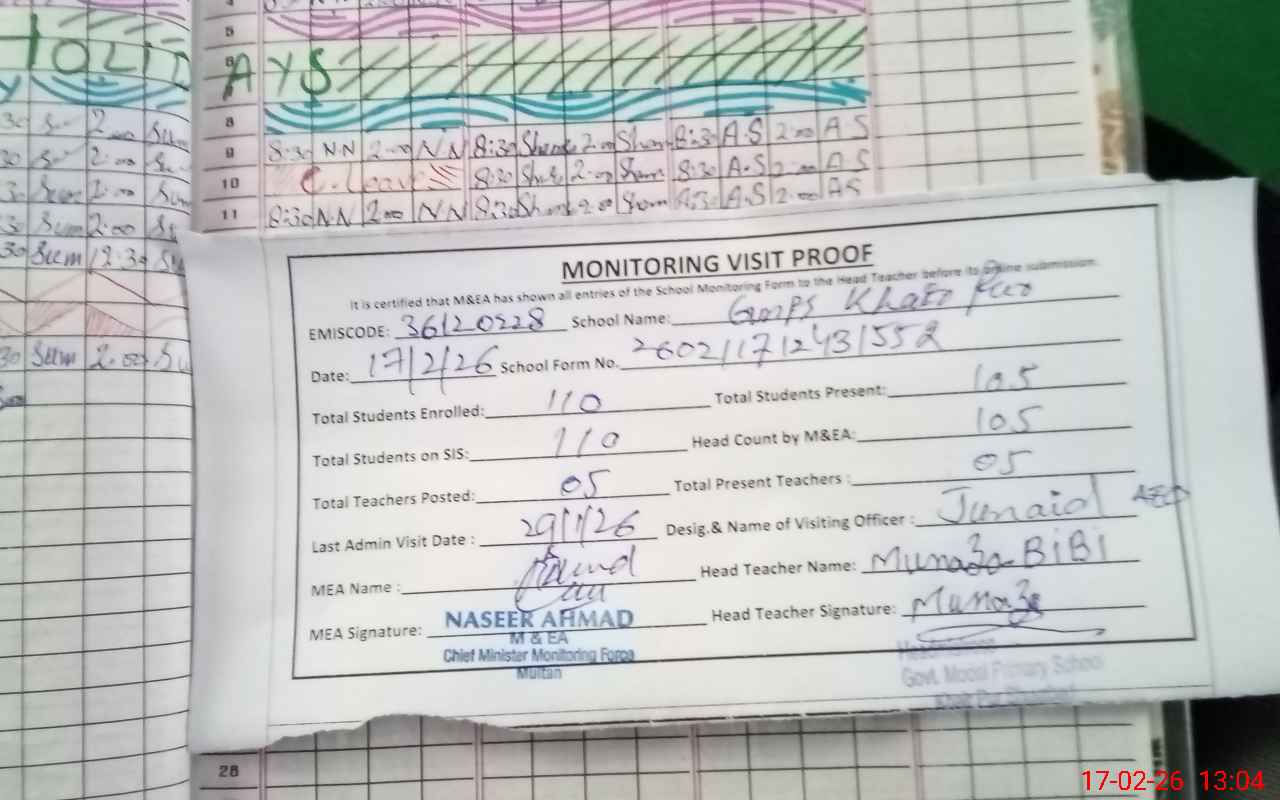 5
6
HOLID AYS
8
30 2.00 Sum 9 8:30 NN 2.00 NN 8:30 2.00 8:30 A.S 2.00 A S
30 2.00 10 C. Leave 8:30 2.00 8:30 A.S 2.00 A S
30 Sum 2.00 Sum 11 8:30 NN 2.00 NN 8:30 2.00 8:30 A.S 2.00 A S
30 Sum 2.00
30 Sum 12:30
30 Sum 2.00
MONITORING VISIT PROOF
It is certified that M&EA has shown all entries of the School Monitoring Form to the Head Teacher before its online submission.
EMISCODE: 36120228 School Name:
Date: 17/2/26 School Form No. 260211712431552
Total Students Enrolled: 110 Total Students Present: 105
Total Students on SIS: 110 Head Count by M&EA: 105
Total Teachers Posted: 05 Total Present Teachers : 05
Last Admin Visit Date : 29/1/26 Desig.& Name of Visiting Officer : Junaid AEO
MEA Name : Head Teacher Name: Munaza BiBi
MEA Signature: Head Teacher Signature: Munaza
NASEER AHMAD
M & EA
Chief Minister Monitoring Force
Multan
Headmistress
Govt. Model Primary School
28
17-02-26 13:04